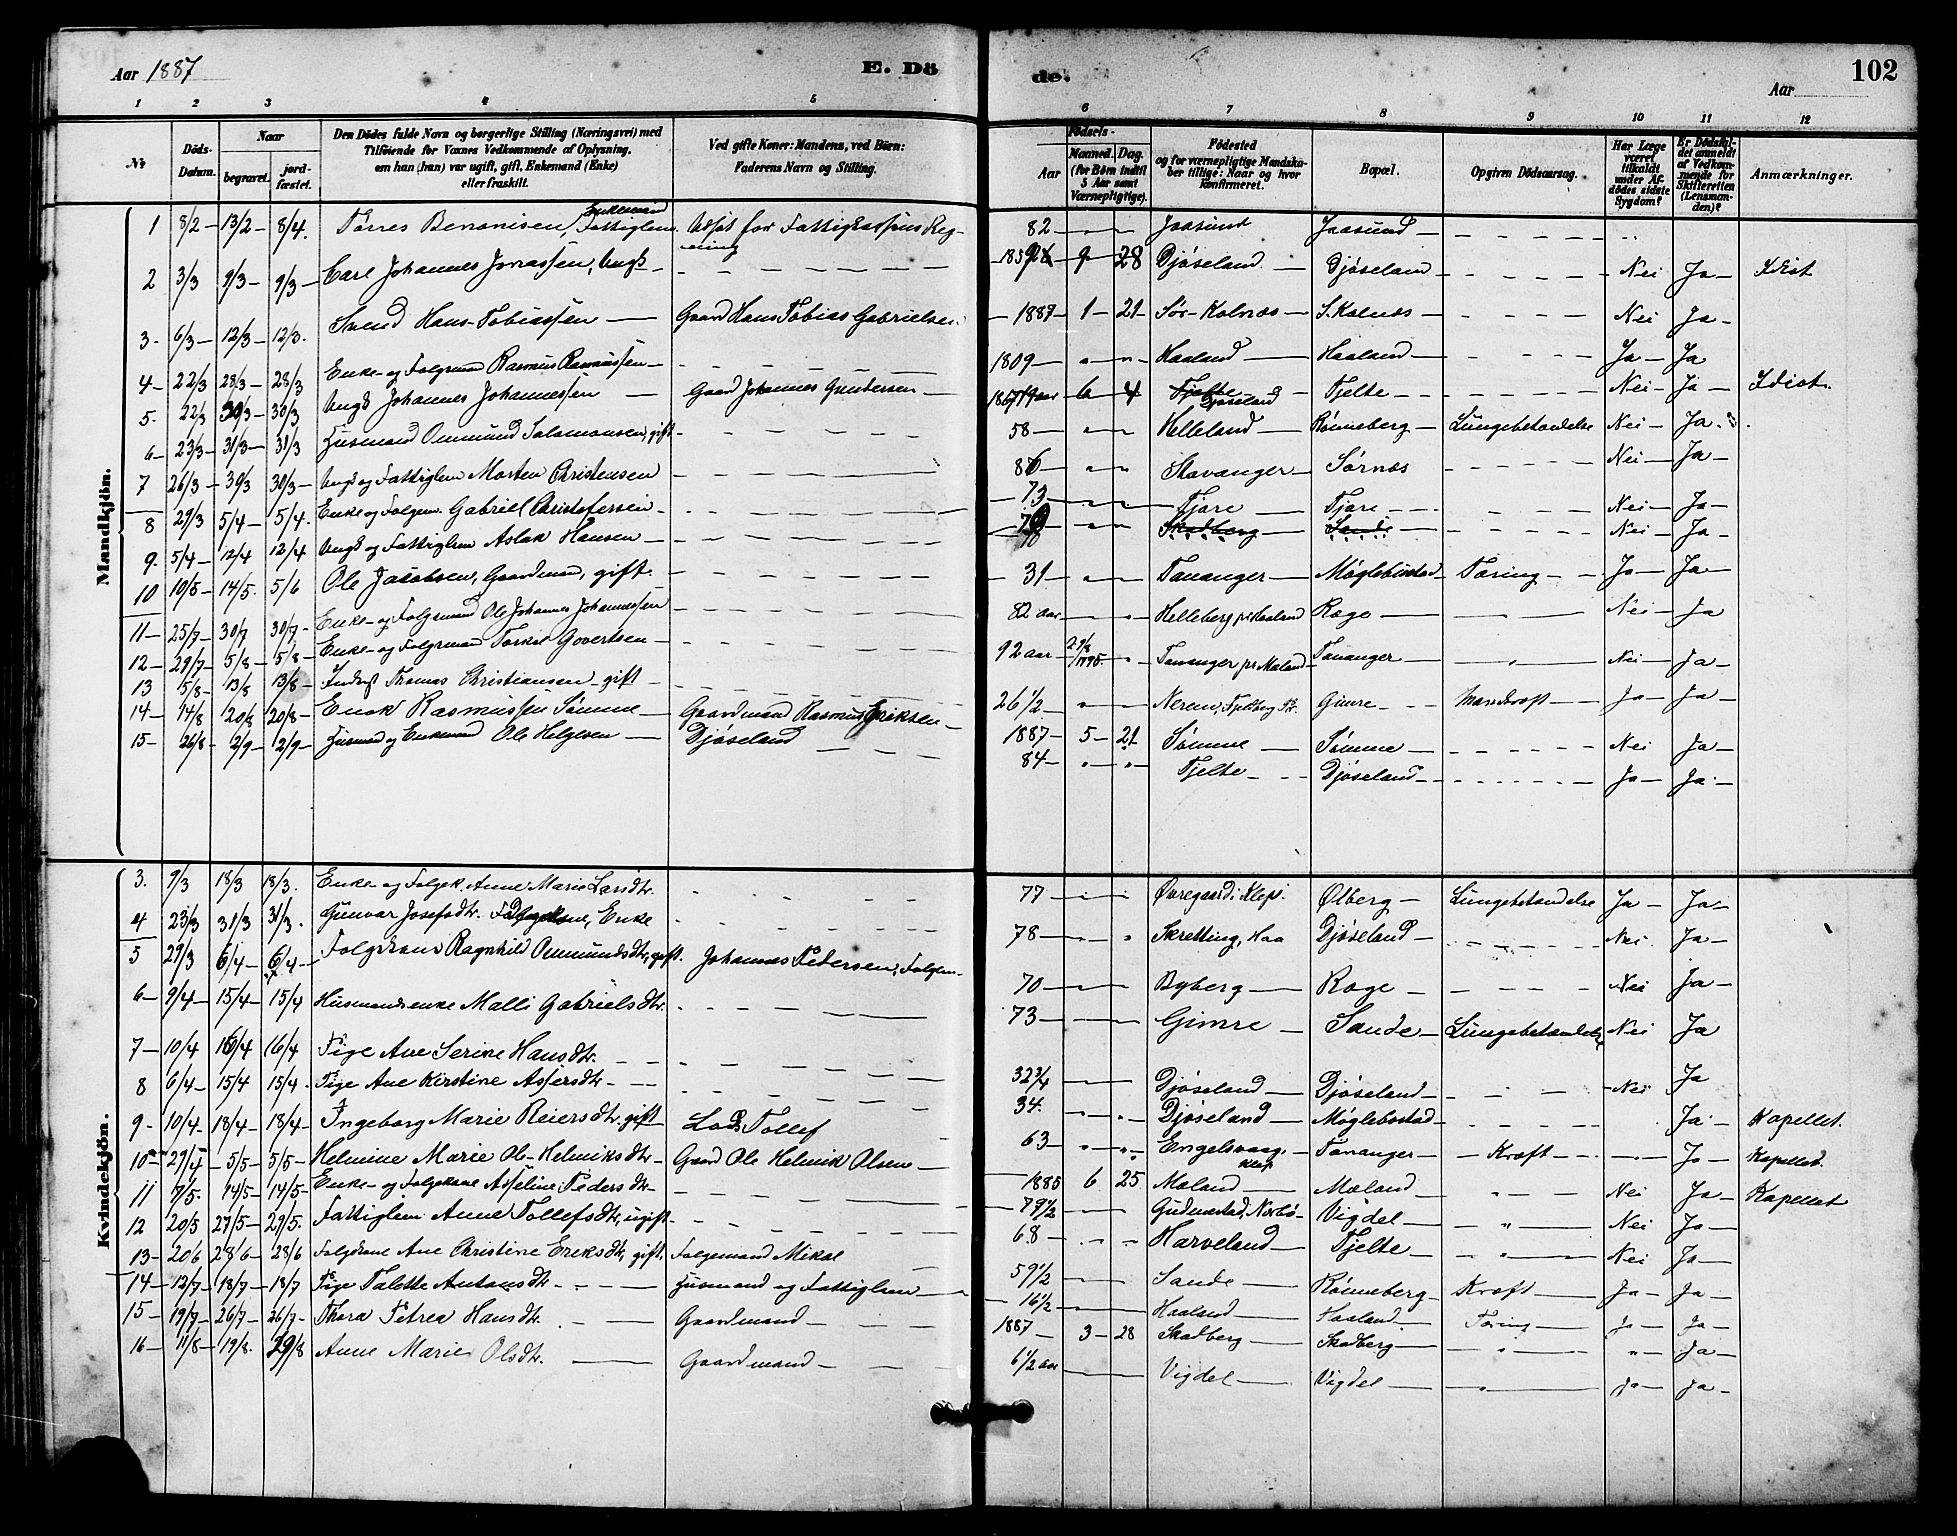 Aar 1887
E. Dö
de.
102
Aar
1 2 3 4 5 6 7 8 9 10 11 12
No
Döds-Datum.
Naar
begravet.
jordfæstet.
Den Dödes fulde Navn og borgerlige Stilling (Næringsvei) med
Tilföiende for Voxnes Vedkommende af Oplysning,
om han (hun) var ugift, gift, Enkemand (Enke)
eller fraskilt.
Ved gifte Koner: Mandens, ved Börn:
Faderens Navn og Stilling.
Födsels-
Aar
Maaned. Dag.
(for Börn indtil
5 Aar samt
Værnepligtige).
Födested
og for værnepligtige Mandska-
ber tillige: Naar og hvor
konfirmeret.
Bopæl.
Opgiven Dödsaarsag.
Har Læge
været
tilkaldt
under Af-
dödes sidste
Sygdom?
Er Dödsfal-
det anmeldt
af Vedkom-
mende for
Skifteretten
(Lensman-
den)?
Anmærkninger.
Mandkjön.
1 8/2 – 13/2 – 8/4. Torres Benonisen, Enkemand Fattiglem. Udsat for Fattigkassens Regning 82 – " – Jaasund Jaasund – – – –
2 3/3 9/3 – 9/3 – Carl Johannes Jonassen, Ungk – – – 9 – 28 Djøseland. – Djøseland – – – – Nei Ja – Idiot
3 – 6/3 – 12/3 – 12/3. Svend Hans Tobiassen – Gaard Hans Tobias Gabrielsen. – 1887 – 1 – 21 – Sør-Kolnæs – S. Kolnæs – – – – Nei Ja –
4 – 22/3 28/3 – 28/3 Enke- og Folgemand Rasmus Rasmussen – – – 1809 – " – " – Haaland – Haaland – – – – Ja – Ja
5. 22/3 30/3 – 30/3 Ungk Johannes Johannessen – Gaard Johannes Gundersen – 1867 19 aar 6 – 4 Tjelte Djøseland – Tjelte – – – – Nei – Ja – Idiot.
6 – 23/3 – 31/3 – 31/3 Husmand Ommund Salamonsen, gift – – – 58 – " – Helleland – Rønneberg – Lungebetændelse Nei – Ja.
7 26/3 – 30/3 30/3 – Ungk og Fattiglem Morten Christensen – – – 86 – " – " Stavanger – Sørnæs – – – – Nei – Ja –
8 29/3 5/4 – 5/4. Enke og Folgem. Gabriel Christofersen – – – – 73 – Tjore – Tjore – – – Nei – Ja –
9. 5/4 – 12/4 12/4 Ungk og Fattiglem Aslak Hansen – – – Skadberg – Sande – – – Nei – Ja –
10 10/5 – 14/5. 5/6 Ole Jacobsen, Gaardmand, gift. – – – – 31 – " – Tananger – Møglebustad – Tæring – – Ja – Ja –
11 – 25/7 – 30/7 30/7 – Enke- og Folgemand Ole Johannes Johannessen – – – 82 aar – " Helleberg pr Haaland Ræge – – Nei – Ja
12 – 29/7 – 5/8 – 5/8 – Enke- og Folgemand Torkel Govertsen – – – 92 aar 27/8 1795. – " Tananger pr Maland – Tananger – " – Nei – Ja –
13 5/8 – 13/8 13/8 – Inderst Thomas Christiansen – gift – – – 26 1/2 – " – " – Gimre – – Ja – Ja –
14 – 14/8 20/8 – 20/8 – Enok Rasmussen Sømme – Gaardmand Rasmus Eriksen – 1887 – 5 – 21 – Sømme – Sømme – – – – Nei Ja –
15 – 26/8 – 2/9 – 2/9 – Husmand og Enkemand Ole Helgesen – Djøseland – – – 84 – " – " – Tjelte – – Djøseland – – – – Ja – Ja –
Kvindekjön.
3. 9/3 18/3 18/3. Enke- og Folgek. Anne Marie Larsdtr. – – – 77 – Øvregaard i Klep. Ølberg – Lungebetændelse Ja – Ja –
4 23/3 31/3 31/3. Gunvor Josefsdtr. Folgekone, Enke – – – 78 – " Skretting, Haa Djøseland – – – – Nei Ja –
5 29/3 6/4 – 6/4 – Folgekone Ragnhild Ommundsdtr, gift. Johannes Pedersen, Folgem – 70 – Byberg – Ræge – – – – Nei Ja –
6 – 9/4 – 15/4 – 15/4 Husmandsenke Malli Gabrielsdtr. – – – 73 – Gimre – Sande – Lungebetændelse Nei Ja
7 – 10/4 16/4 16/4 Pige Ane Serine Hansdtr. – – – 32 3/4 – Djøseland – Djøseland – – – – Nei Ja
8 6/4 – 15/4 15/4 – Pige Ane Kirstine Assersdtr – – – 34. – Djøseland – Møglebostad – – – – Ja – Kapellet.
9 – 10/4 – 18/4 – 18/4 – Ingeborg Marie Reiersdtr. gift Lods Tollef 63 – " – Engelsvaag. – Tananger – – Kræft – – – Ja – Kapellet.
10 – 29/4 – 5/5 – 5/5 – Helmine Marie Ole-Helmiksdtr – Gaard Ole Helmik Olsen – – 1885 6 25 Maland – Mæland – " – Nei Ja – Kapellet
11 7/5. 14/5 – 14/5 – Enke- og Folgekone Asseline Pedersdtr – – – – 79 1/2 – Gudmestad, Nærbø – Vigdel – – " – Nei Ja –
12 20/5 27/5 – 29/5. Fattiglem Anne Tollefsdtr, ugift – – – – 68 – Harveland – Tjelte – – Nei Ja –
13 – 20/6 28/6 – 28/6 Folgekone Ane Christine Eriksdtr, gift. Folgemand Mikal – 59 1/2 – Sande – Rønneberg – Kræft – Ja – Ja –
14 – 12/7 – 18/7 – 18/7 Pige Talette Antonsdtr – – Husmand og Fattiglem – – 16 1/2 – Haaland – Haaland – Tæring – Ja – Ja –
15 – 19/7 – 26/7 – 26/7 – Thora Petrea Hansdtr. – – Gaardmand – – 1887 – 3 – 28 Skadberg – Skadberg – " – " – Ja –
16 – 11/8 – 19/8. 29/8 Anne Marie Olsdtr. – Gaardmand – – – 6 1/2 aar – Vigdel – Vigdel – " – Ja – Ja –